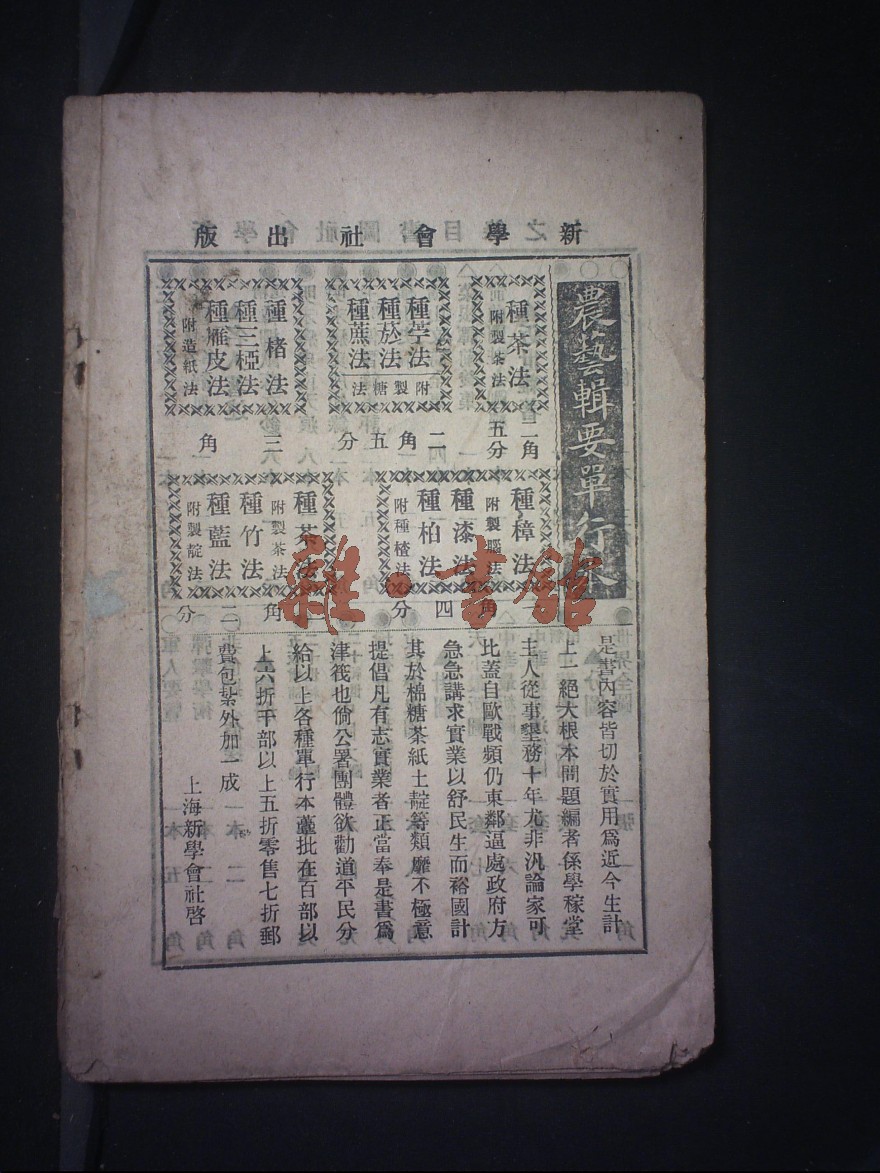 新學會社出版
農藝輯要單行本
種茶法
附製茶法
一角五分
種苧法
種菸法
種蔗法
附製糖法
二角五分
種楮法
種三椏法
種雁皮法
附造紙法
三角
種樟法
附製腦法
種漆法
種桕法
附種楂法
一角四分
種茶法
附製茶法
種竹法
種藍法
附製靛法
角二分
是書內容皆切於實用爲近今生計
上一絕大根本問題編者係學稼堂
主人從事墾務十年尤非汎論家可
比蓋自歐戰頻仍東鄰逼處政府方
急急講求實業以舒民生而裕國計
其於棉糖茶紙土靛等類靡不極意
提倡凡有志實業者正當奉是書爲
津筏也倘公署團體欲勸道平民分
給以上各種單行本躉批在百部以
上六折千部以上五折零售七折郵
費包紮外加一成
上海新學會社啓
雜·書館